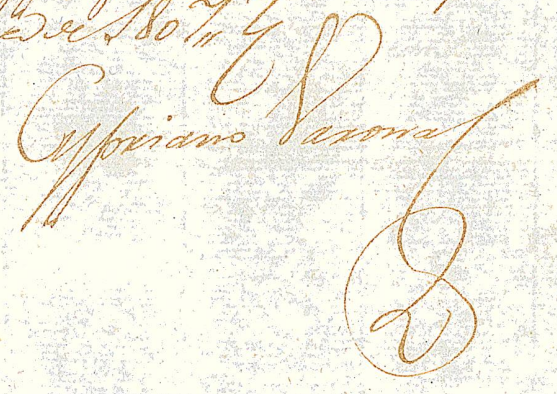 de 1807
Cypriano Varona